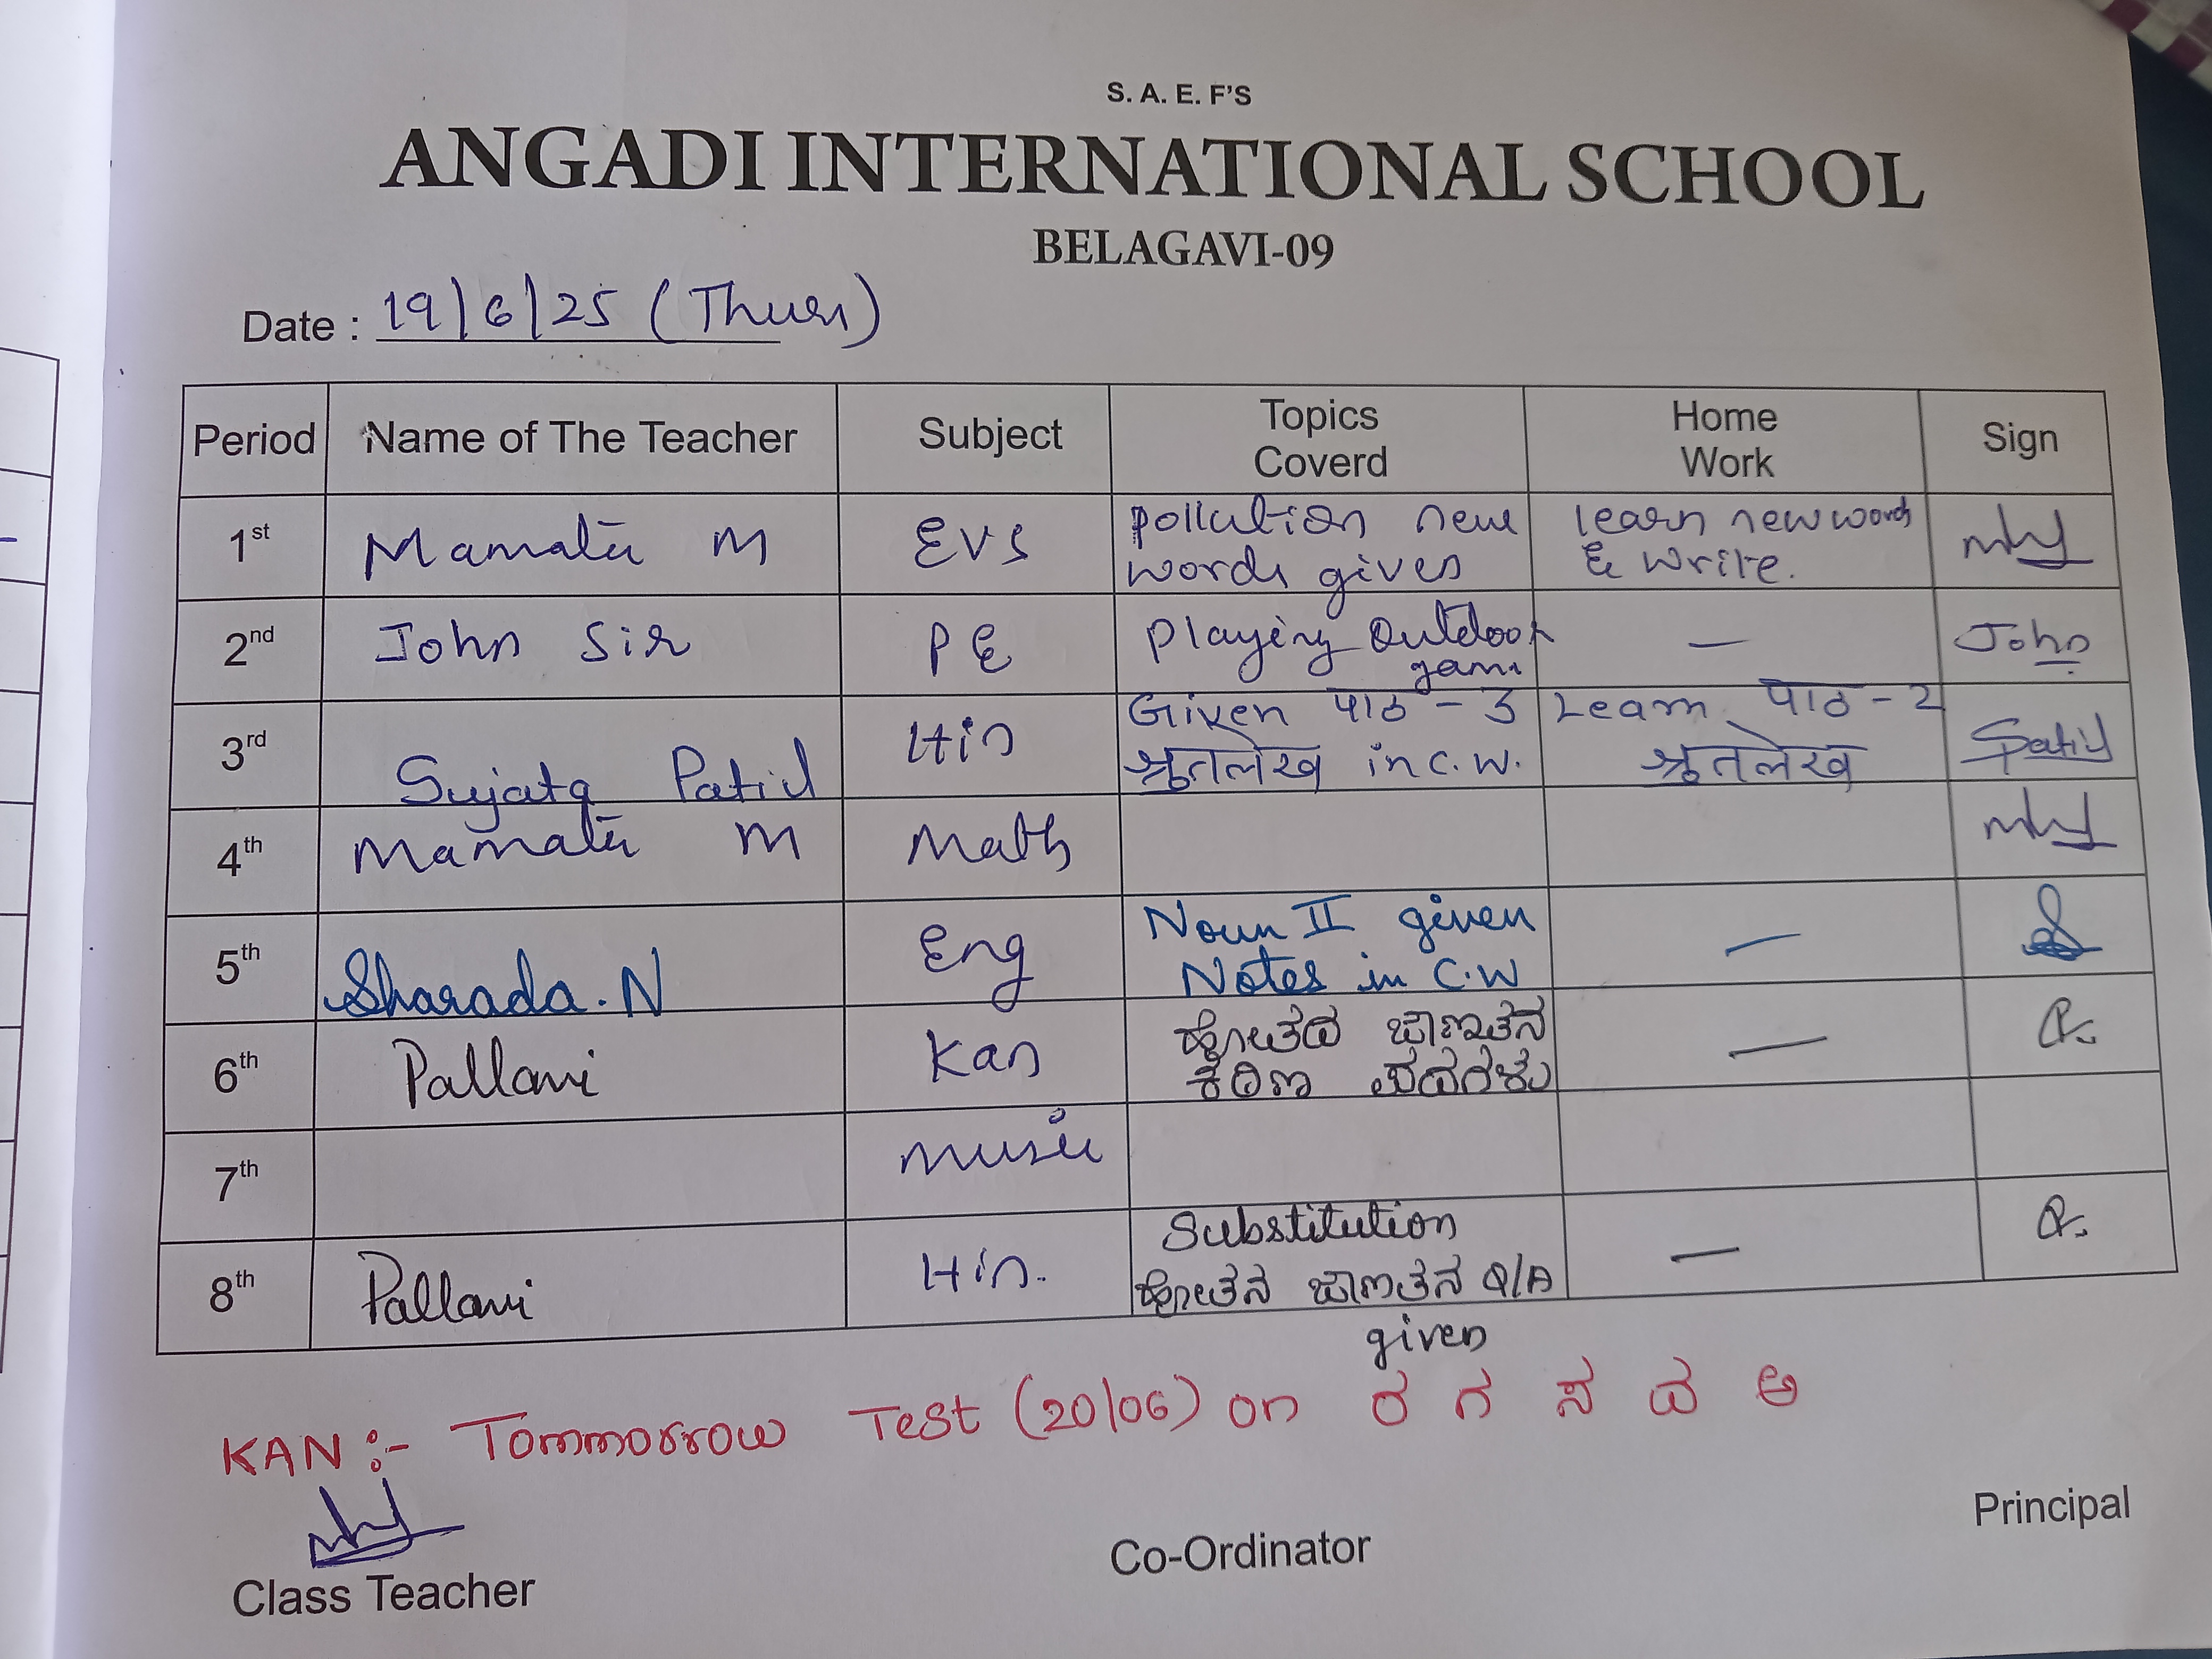 S. A. E. F'S
ANGADI INTERNATIONAL SCHOOL
BELAGAVI-09
Date : 19/6/25 (Thurs)
Period Name of The Teacher Subject Topics Coverd Home Work Sign
1st Mamata M EVS pollution new words gives learn new words & write.
2nd John Sir PE Playing Outdoor game — John
3rd Sujata Patil Hin Given पाठ - 3 श्रुतलेख in C.W. Learn पाठ - 2 श्रुतलेख Patil
4th Mamata M Math
5th Sharada.N Eng Noun II given Notes in C.W —
6th Pallavi Kan ಜಾಣತನ ಕಠಿಣ ಪದಗಳು —
7th music
8th Pallavi Hin. Substitution ಜಾಣತನ Q/A given —
KAN :- Tommorrow Test (20/06) on ರ ಗ ಸ ದ ಅ
Class Teacher
Co-Ordinator
Principal